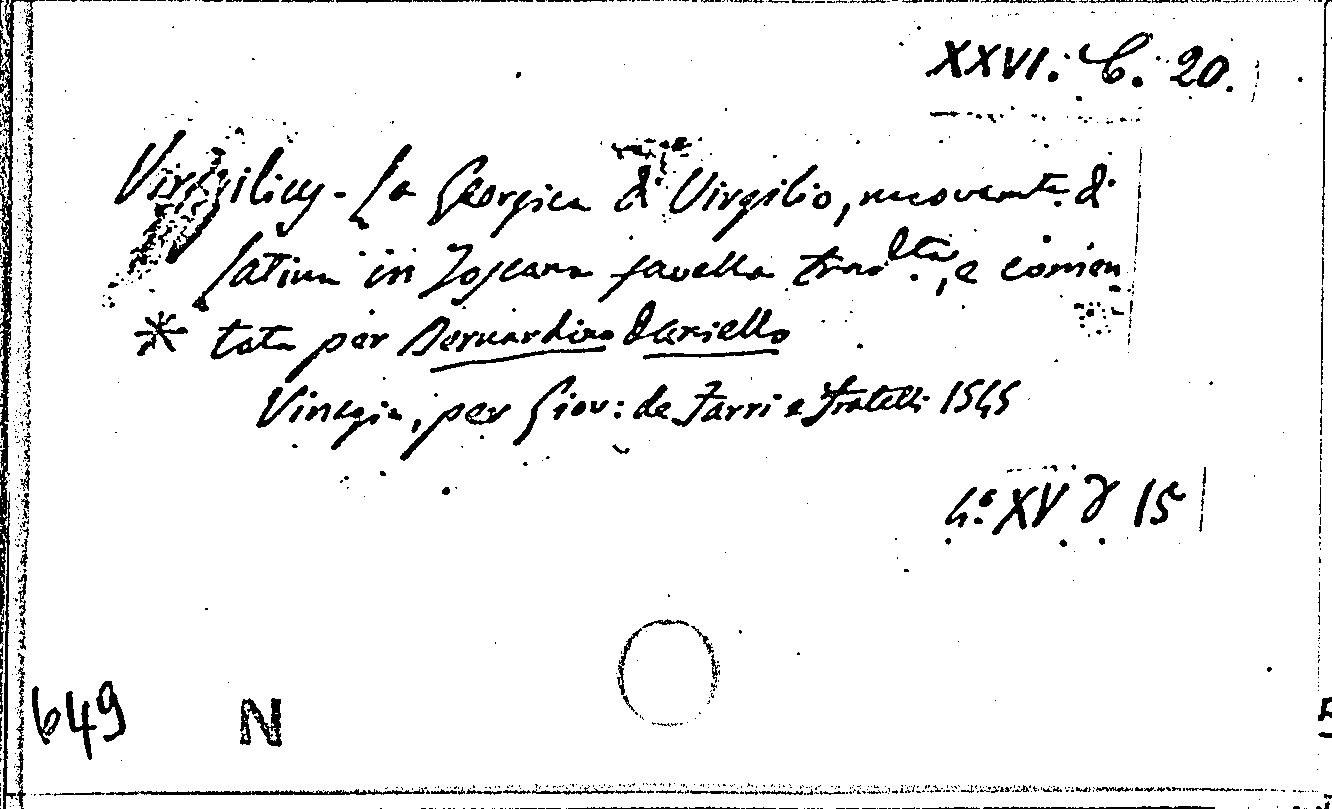 XXVI. C. 20.
Virgilius - La Georgica di Virgilio, nuovamte. di
latina in Toscana favella tradltta, e comen
* tata per Bernardino Daniello
Vinegia, per Giov: de Farri e fratelli 1545
4.º XV γ 15
649 N